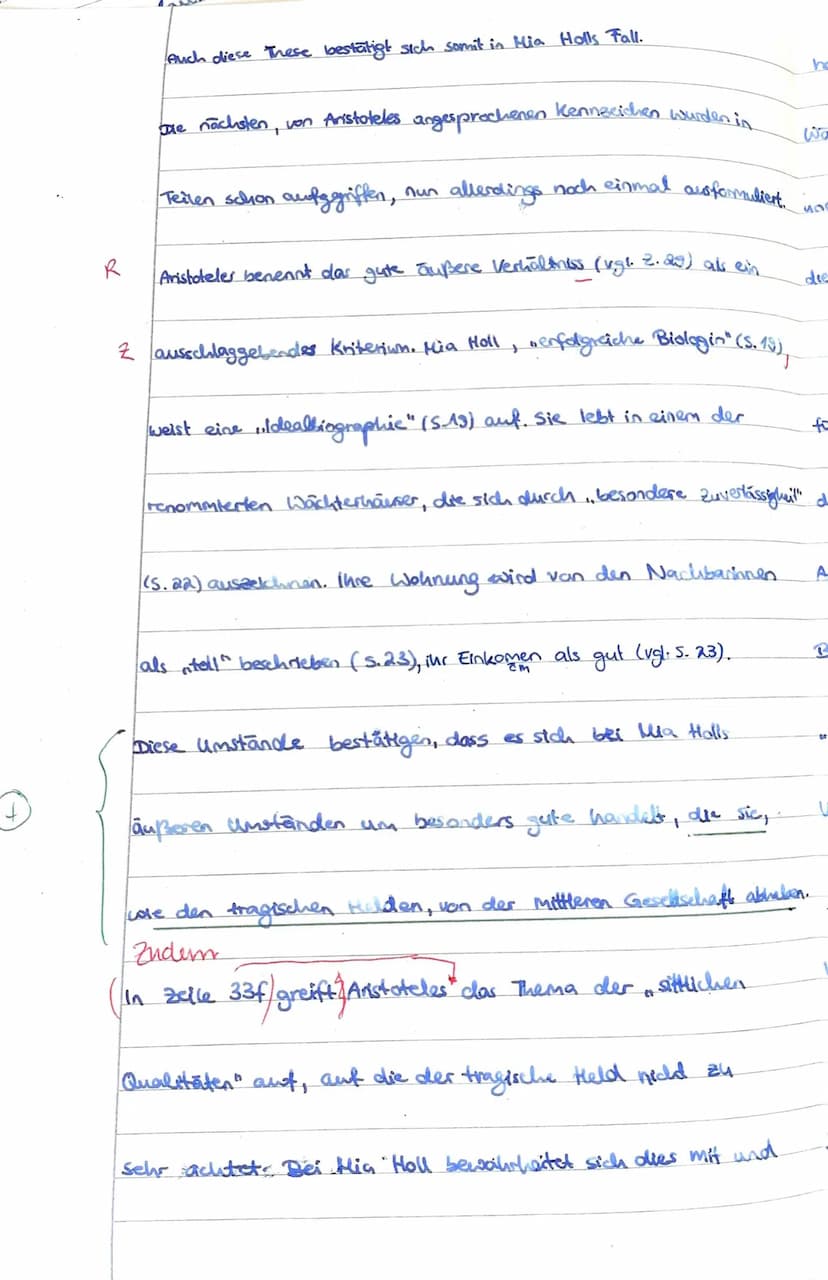 Auch diese These bestätigt sich somit in Mia Holls Fall.
Die nächsten, von Aristoteles angesprochenen Kennzeichen wurden in
Teilen schon aufggriffen, nun allerdings noch einmal ausformuliert.
R Aristoteles benennt das gute äußere Verhältniss (vgl. Z. 29) als ein
Z ausschlaggebendes Kriterium. Mia Holl, „erfolgreiche Biologin" (S. 19),
weist eine „Idealbiographie" (S.19) auf. Sie lebt in einem der
renommierten Wächterhäuser, die sich durch „besondere Zuverlässigkeit"
(S. 22) auszeichnen. Ihre Wohnung wird von den Nachbarinnen
als „toll" beschrieben (S. 23), ihr Einkomen als gut (vgl. S. 23).
em
Diese Umstände bestätigen, dass es sich bei Mia Holls
+ äußeren Umständen um besonders gute handelt, die sie,
wie den tragischen Helden, von der mittleren Gesellschaft abheben.
Zudem
(In Zeile 33f) greift Aristoteles das Thema der „sittlichen
Qualitäten" auf, auf die der tragische Held nicht zu
sehr achtet. Bei Mia Holl bewahrheitet sich dies mit und